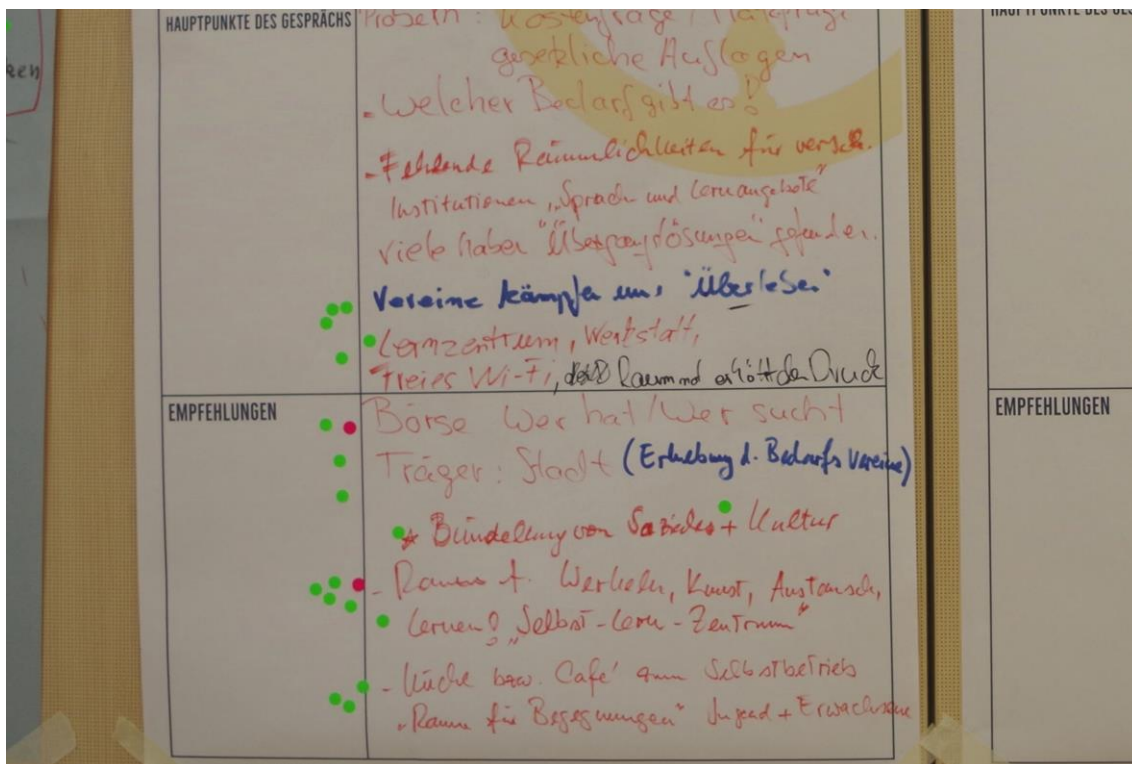 ken
HAUPTPUNKTE DES GESPRÄCHS
Problem: Kostenfrage /
gesetzliche Auflagen
- Welcher Bedarf gibt es?
- Fehlende Räumlichkeiten für versch.
Institutionen „Sprach- und Lernangebote"
viele haben "Übergangslösungen" gefunden.
Vereine kämpfen ums "Überleben"
Lernzentrum, Werkstatt,
freies Wi-Fi, Raum erhöht den Druck
EMPFEHLUNGEN
Börse Wer hat/Wer sucht
Träger: Stadt (Erhebung d. Bedarfs Vereine)
* Bündelung von Soziales + Kultur
- Raum f. Werkeln, Kunst, Austausch,
Lernen! „Selbst-Lern-Zentrum"
- Küche bzw. Café zum Selbstbetrieb
„Raum für Begegnungen" Jugend + Erwachsene
HAUPTPUNKTE DES GES
EMPFEHLUNGEN